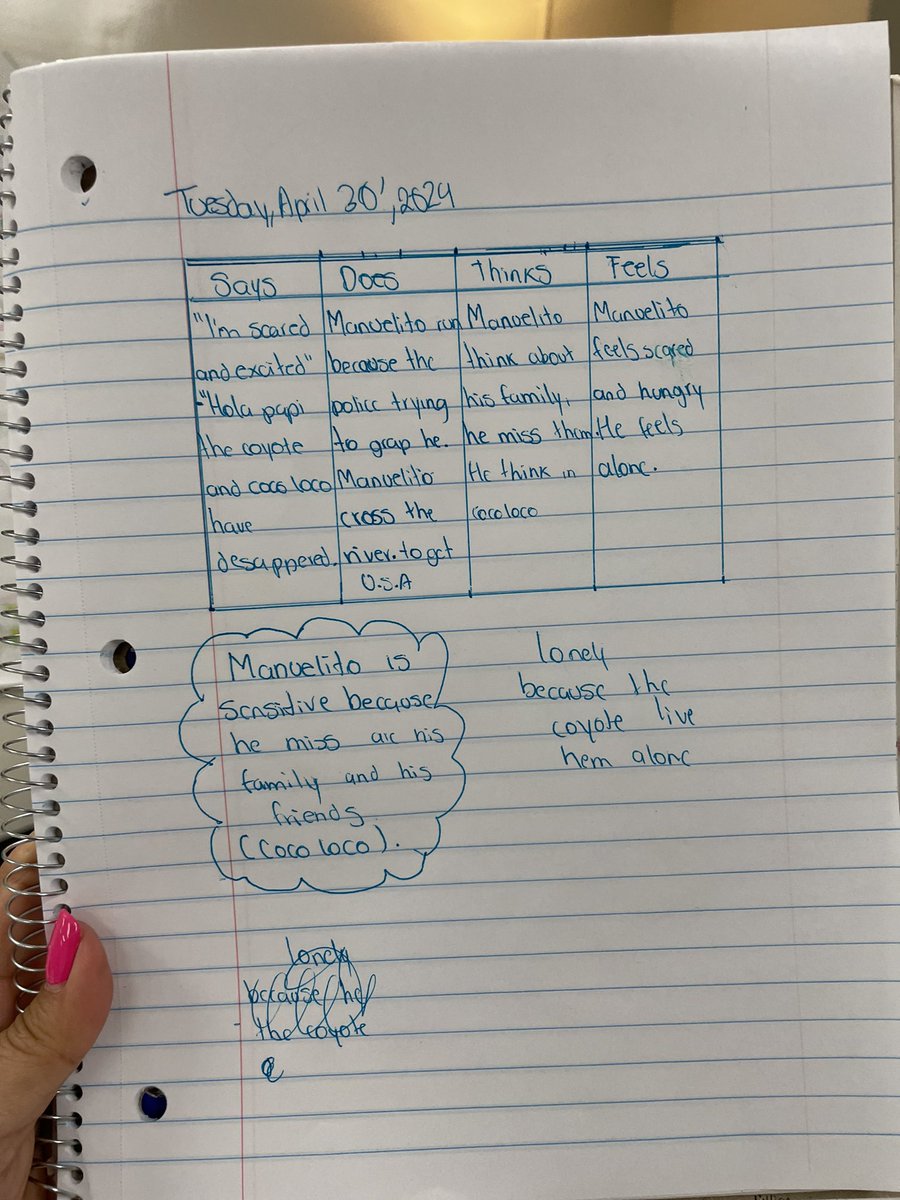 Tuesday, April 30', 2024
Says
"I'm scared
and excited"
-"Hola papi
the coyote
and coco loco
have
desappered.
Does
Manuelito run
because the
police trying
to grap he.
Manuelito
cross the
river. to get
U.S.A
Thinks
Manuelito
think about
his family,
he miss them.
He think in
cocoloco
Feels
Manuelito
feels scared
and hungry
He feels
alone.
Manuelito is
sensitive because
he miss are his
family and his
friends.
(Coco loco).
lonely
because the
coyote live
hem alone
lonely
because he
the coyote